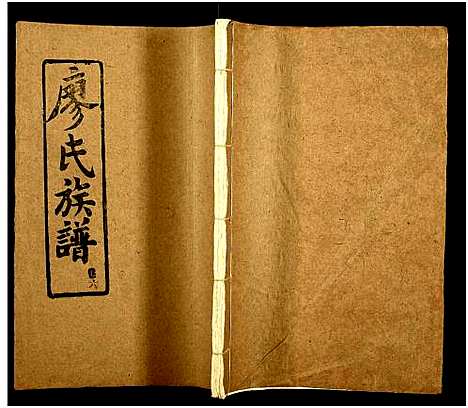 廖氏族譜
卷六